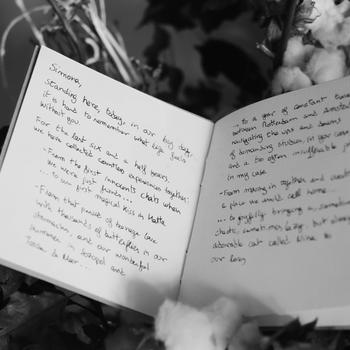 Simona,
Standing here, today, in our big day,
it is hard to remember what life feels
without you
For the last six and a half years,
we have collected countless experiences together:
- From the first innocents chats when
we were just friends...
... to our first magical kiss in Malta
- From that purest of teenage love
with thousands of butterflies in our
stomachs, and our wonderful
summer in and
... to a year of constant
between Rotterdam and
navigating the ups and downs
of demanding studies, in your case
and a too often insufferable job
in my case
- From moving in together and
a place we could call home...
... to joyfully bringing a, sometimes
chaotic, sometimes lazy, but always
adorable cat called to
our lives